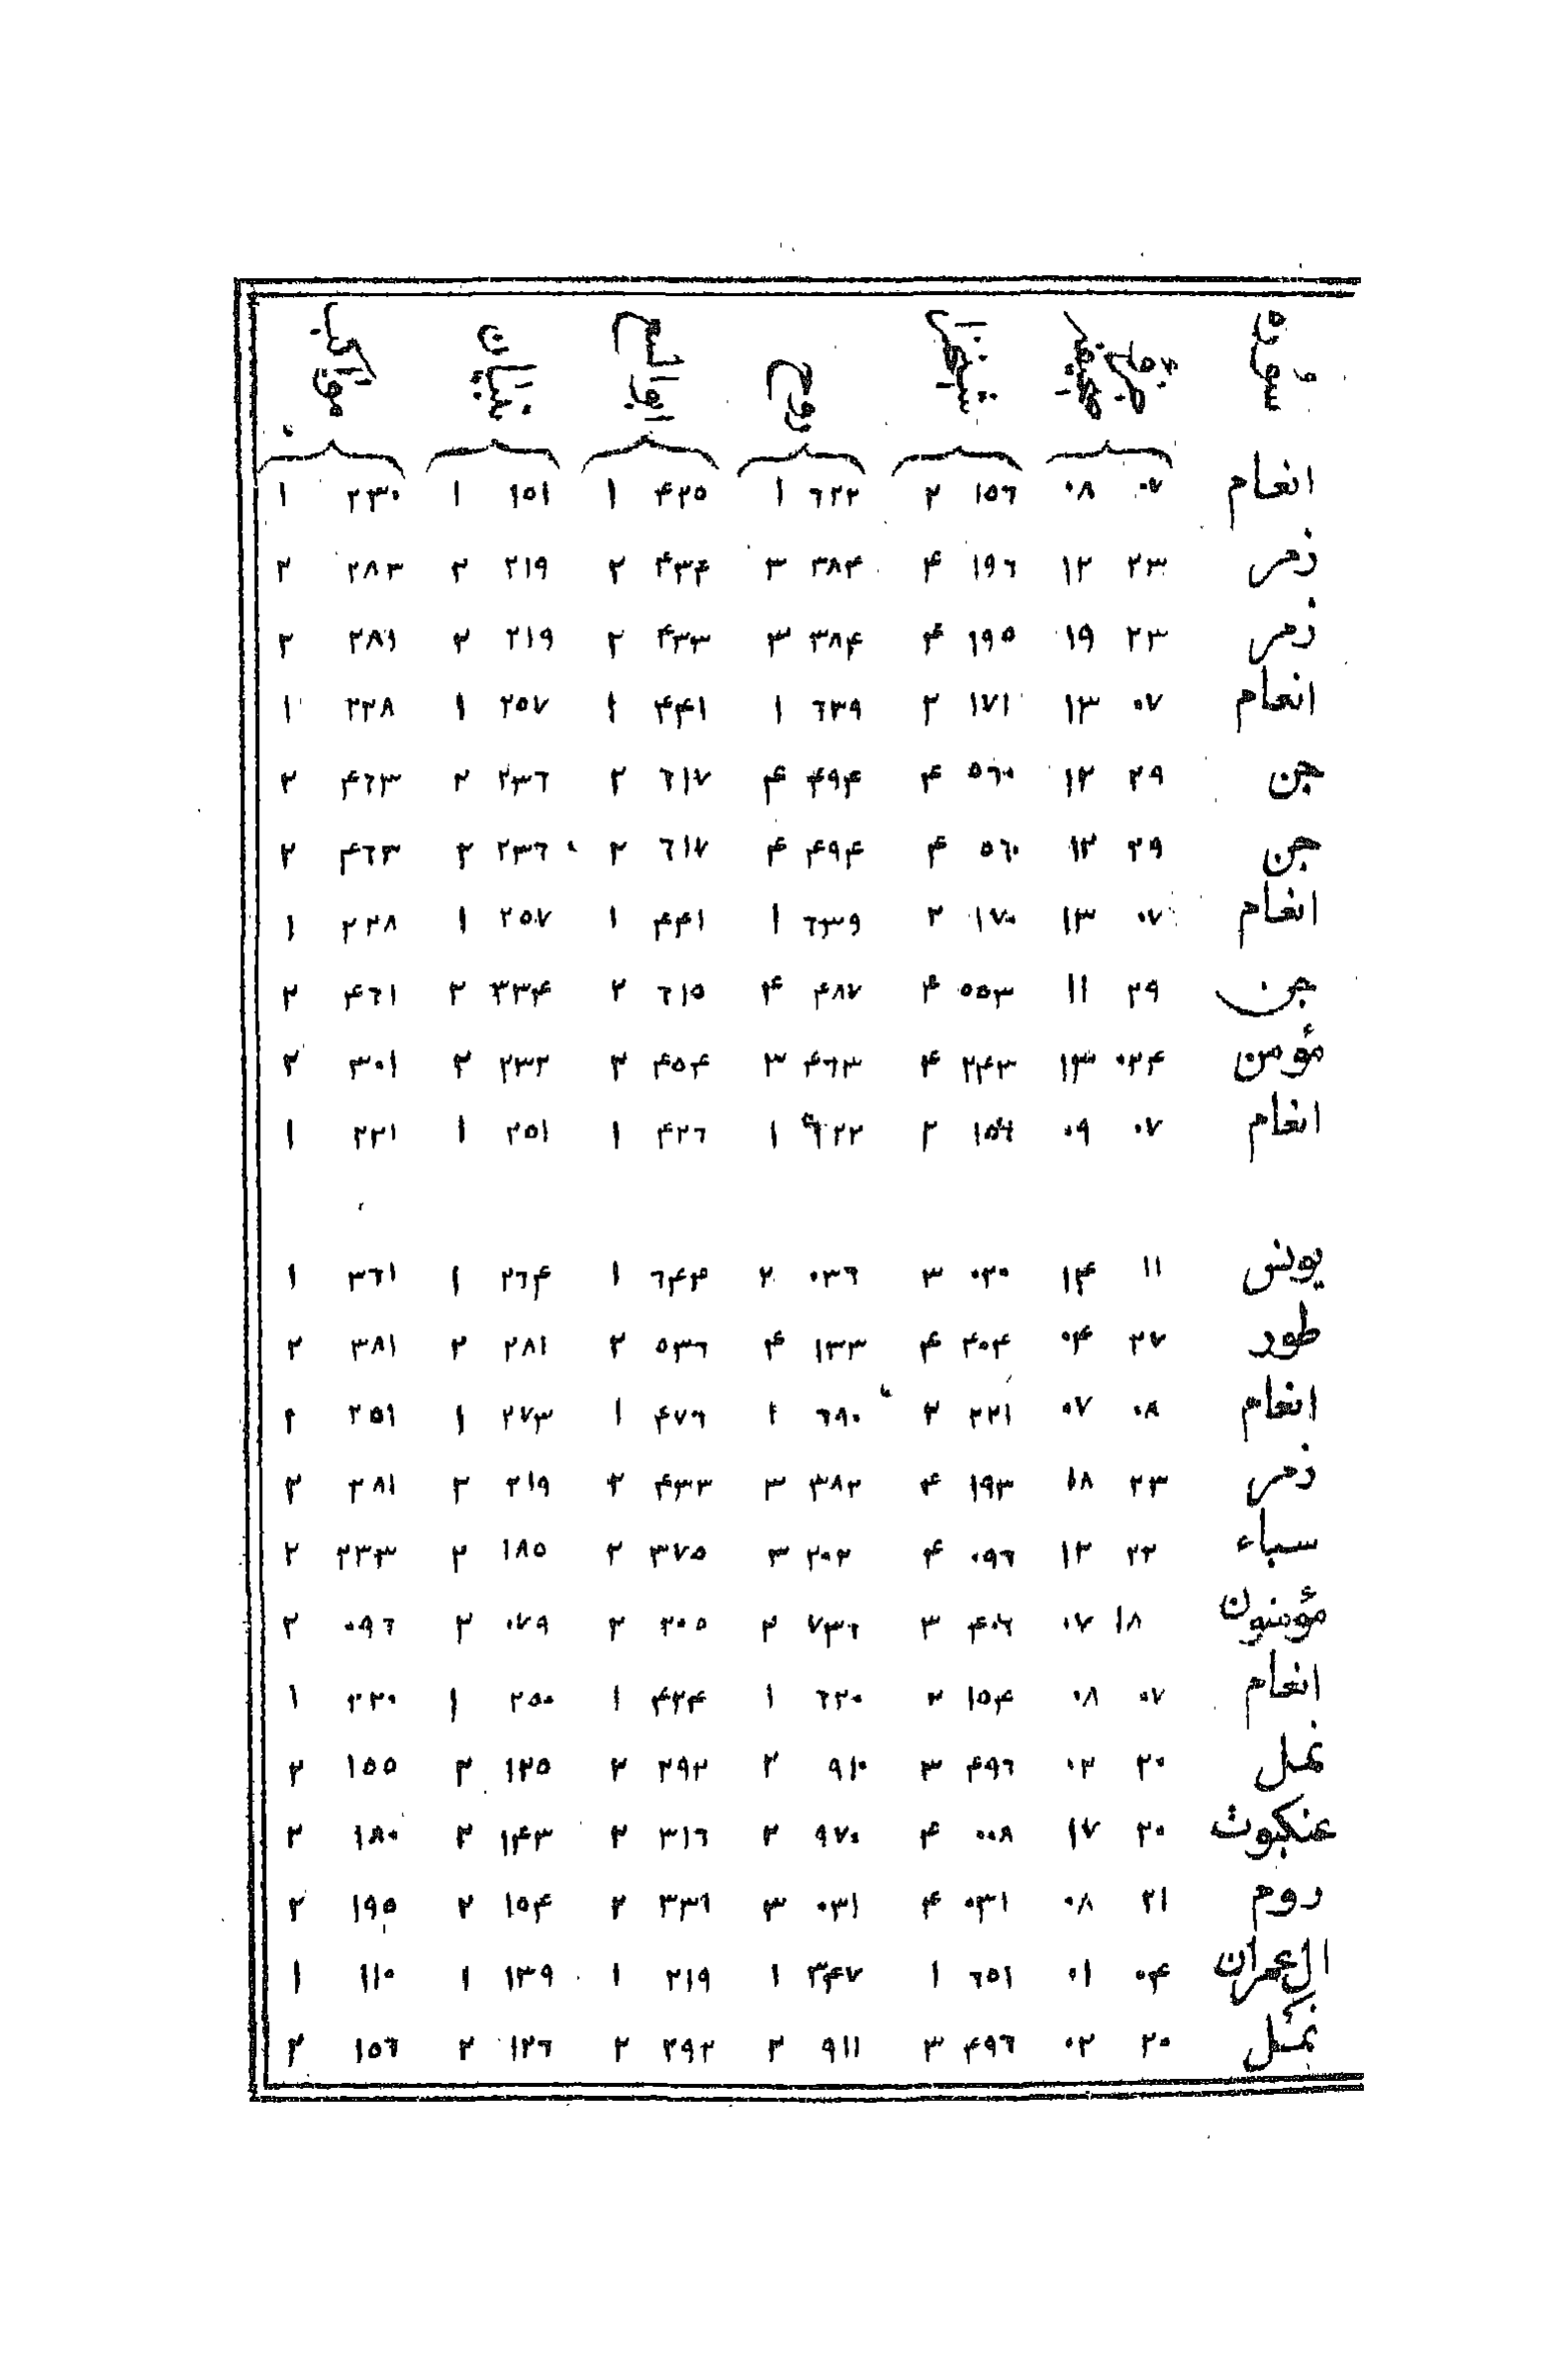 انعام ۰۷ ۰۸ ۱۵٦ ۲ ٦۲۲ ۱ ۴۲۵ ۱ ۱۵۱ ۱ ۲۳۰ ۱
زمر ۲۳ ۱۲ ۱۹٦ ۴ ۳۸۴ ۳ ۴۳۴ ۲ ۲۱۹ ۲ ۲۸۳ ۲
زمر ۲۳ ۱۹ ۱۹۵ ۴ ۳۸۴ ۳ ۴۳۳ ۲ ۲۱۹ ۲ ۲۸۱ ۲
انعام ۰۷ ۱۳ ۱۷۱ ۲ ٦۳۹ ۱ ۴۴۱ ۱ ۲۵۷ ۱ ۲۳۸ ۱
جن ۲۹ ۱۲ ۵٦۰ ۴ ۴۹۴ ۴ ٦۱۷ ۲ ۲۳٦ ۲ ۴٦۳ ۲
جن ۲۹ ۱۲ ۵٦۰ ۴ ۴۹۴ ۴ ٦۱۷ ۲ ۲۳٦ ۲ ۴٦۳ ۲
انعام ۰۷ ۱۳ ۱۷۰ ۲ ٦۳۹ ۱ ۴۴۱ ۱ ۲۵۷ ۱ ۲۳۸ ۱
جن ۲۹ ۱۱ ۵۵۳ ۴ ۴۸۷ ۴ ٦۱۵ ۲ ۳۳۴ ۲ ۴٦۱ ۲
مؤمن ۰۲۴ ۱۳ ۲۴۳ ۴ ۴٦۳ ۳ ۴۵۴ ۲ ۲۳۲ ۲ ۳۰۱ ۲
انعام ۰۷ ۰۹ ۱۵٦ ۲ ٦۲۲ ۱ ۴۲٦ ۱ ۲۵۱ ۱ ۲۳۱ ۱
یونس ۱۱ ۱۴ ۰۲۰ ۳ ۰۳٦ ۲ ٦۴۴ ۱ ۲٦۴ ۱ ۳٦۱ ۱
طور ۲۷ ۰۴ ۴۰۴ ۴ ۱۳۳ ۴ ۵۳٦ ۲ ۲۸۱ ۲ ۳۸۱ ۲
انعام ۰۸ ۰۷ ۲۲۱ ۲ ٦۸۰ ۱ ۴۷٦ ۱ ۲۷۳ ۱ ۲۵۱ ۱
زمر ۲۳ ۱۸ ۱۹۳ ۴ ۳۸۲ ۳ ۴۳۳ ۲ ۲۱۹ ۲ ۲۸۱ ۲
سباء ۲۲ ۱۲ ۰۹٦ ۴ ۲۰۲ ۳ ۳۷۵ ۲ ۱۸۵ ۲ ۲۳۳ ۲
مؤمنون ۱۸ ۰۷ ۴۰٦ ۳ ۷۳٦ ۲ ۲۰۵ ۲ ۰۷۹ ۲ ۰۹٦ ۲
انعام ۰۷ ۰۸ ۱۵۴ ۲ ٦۲۰ ۱ ۴۲۴ ۱ ۲۵۰ ۱ ۲۳۰ ۱
نمل ۲۰ ۰۲ ۴۹٦ ۳ ۹۱۰ ۲ ۲۹۲ ۲ ۱۲۵ ۲ ۱۵۵ ۲
عنکبوت ۲۰ ۱۷ ۰۰۸ ۴ ۹۷۰ ۲ ۳۱٦ ۲ ۱۴۳ ۲ ۱۸۰ ۲
روم ۲۱ ۰۸ ۰۳۱ ۴ ۰۳۱ ۳ ۳۳۱ ۲ ۱۵۴ ۲ ۱۹۵ ۲
ال عمران ۰۴ ۰۱ ٦۵۱ ۱ ۳۴۷ ۱ ۲۱۹ ۱ ۱۳۹ ۱ ۱۱۰ ۱
نمل ۲۰ ۰۲ ۴۹٦ ۳ ۹۱۱ ۲ ۲۹۲ ۲ ۱۲٦ ۲ ۱۵٦ ۲